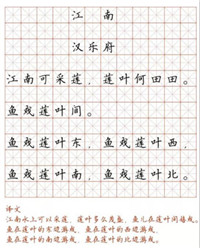 江南
汉乐府
江南可采莲，莲叶何田田。
鱼戏莲叶间。
鱼戏莲叶东，鱼戏莲叶西，
鱼戏莲叶南，鱼戏莲叶北。
译文
江南水上可以采莲，莲叶多么茂盛，鱼儿在莲叶间嬉戏。
鱼在莲叶的东边游戏，鱼在莲叶的西边游戏，
鱼在莲叶的南边游戏，鱼在莲叶的北边游戏。